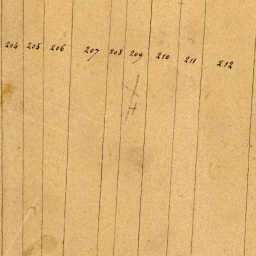 204 205 206 207 208 209 210 211 212